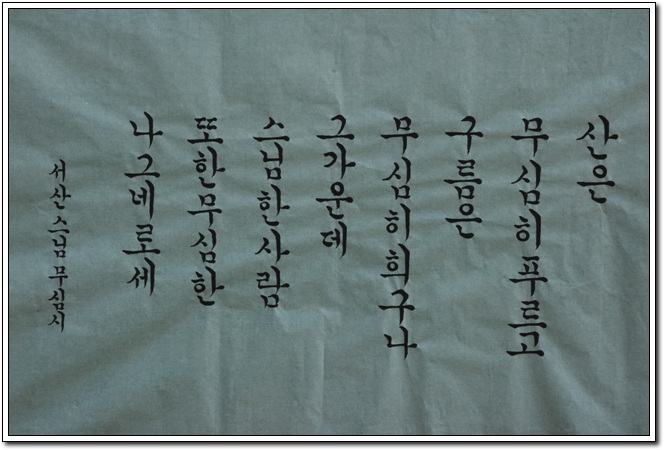 산은
무심히푸르고
구름은
무심히희구나
그가운데
스님한사람
또한무심한
나그네로세
서산스님무심시